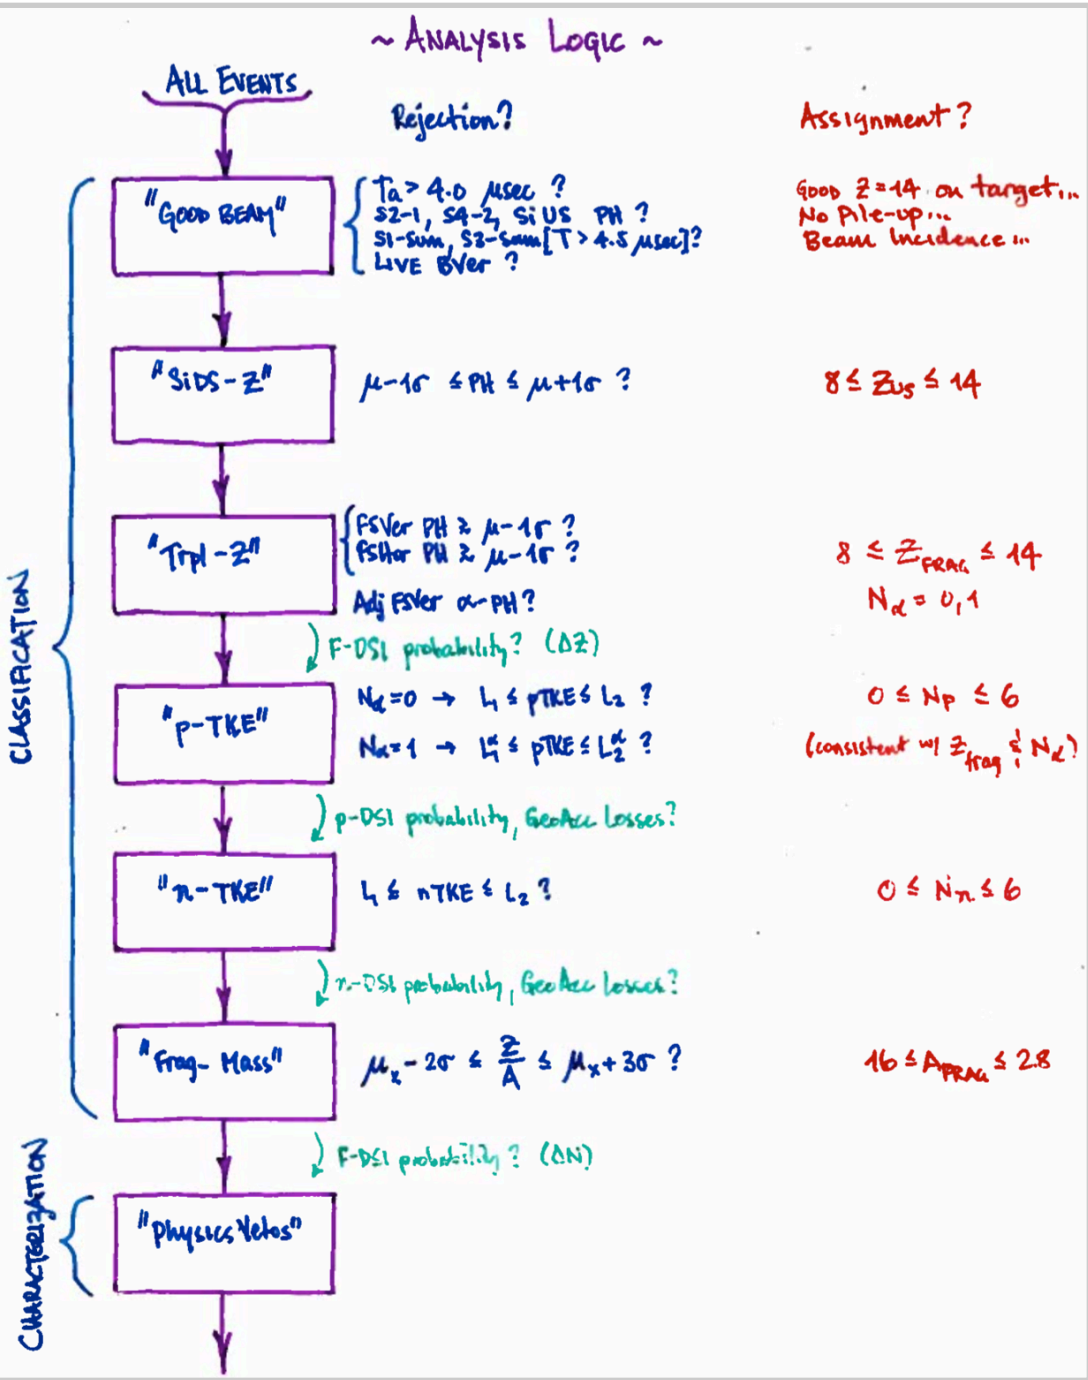 ~ ANALYSIS LOGIC ~
ALL EVENTS
Rejection?
Assignment?
"GOOD BEAM"
Ta > 4.0 μsec ?
S2-1, S4-2, Si US PH ?
S1-Sum, S3-Sum [T > 4.5 μsec]?
LIVE BVer ?
Good Z=14 on target...
No Pile-up...
Beam Incidence...
"SiDS-Z"
μ-1σ ≤ PH ≤ μ+1σ ?
8 ≤ Zus ≤ 14
"Trpl-Z"
FSVer PH ≥ μ-1σ ?
FSHor PH ≥ μ-1σ ?
Adj FSVer α-PH?
8 ≤ Z_FRAG ≤ 14
Nα = 0,1
F-DSI probability? (ΔZ)
"p-TKE"
Nα=0 → L₁ ≤ pTKE ≤ L₂ ?
Nα=1 → L₁^α ≤ pTKE ≤ L₂^α ?
0 ≤ Np ≤ 6
(consistent w/ Z_frag & Nα?)
p-DSI probability, GeoAcc Losses?
"n-TKE"
L₁ ≤ nTKE ≤ L₂ ?
0 ≤ Nn ≤ 6
n-DSI probability, GeoAcc Losses?
"Frag-Mass"
μₓ - 2σ ≤ Z/A ≤ μₓ + 3σ ?
16 ≤ A_FRAG ≤ 28
F-DSI probability? (ΔN)
"Physics Vetos"
CLASSIFICATION
CHARACTERIZATION